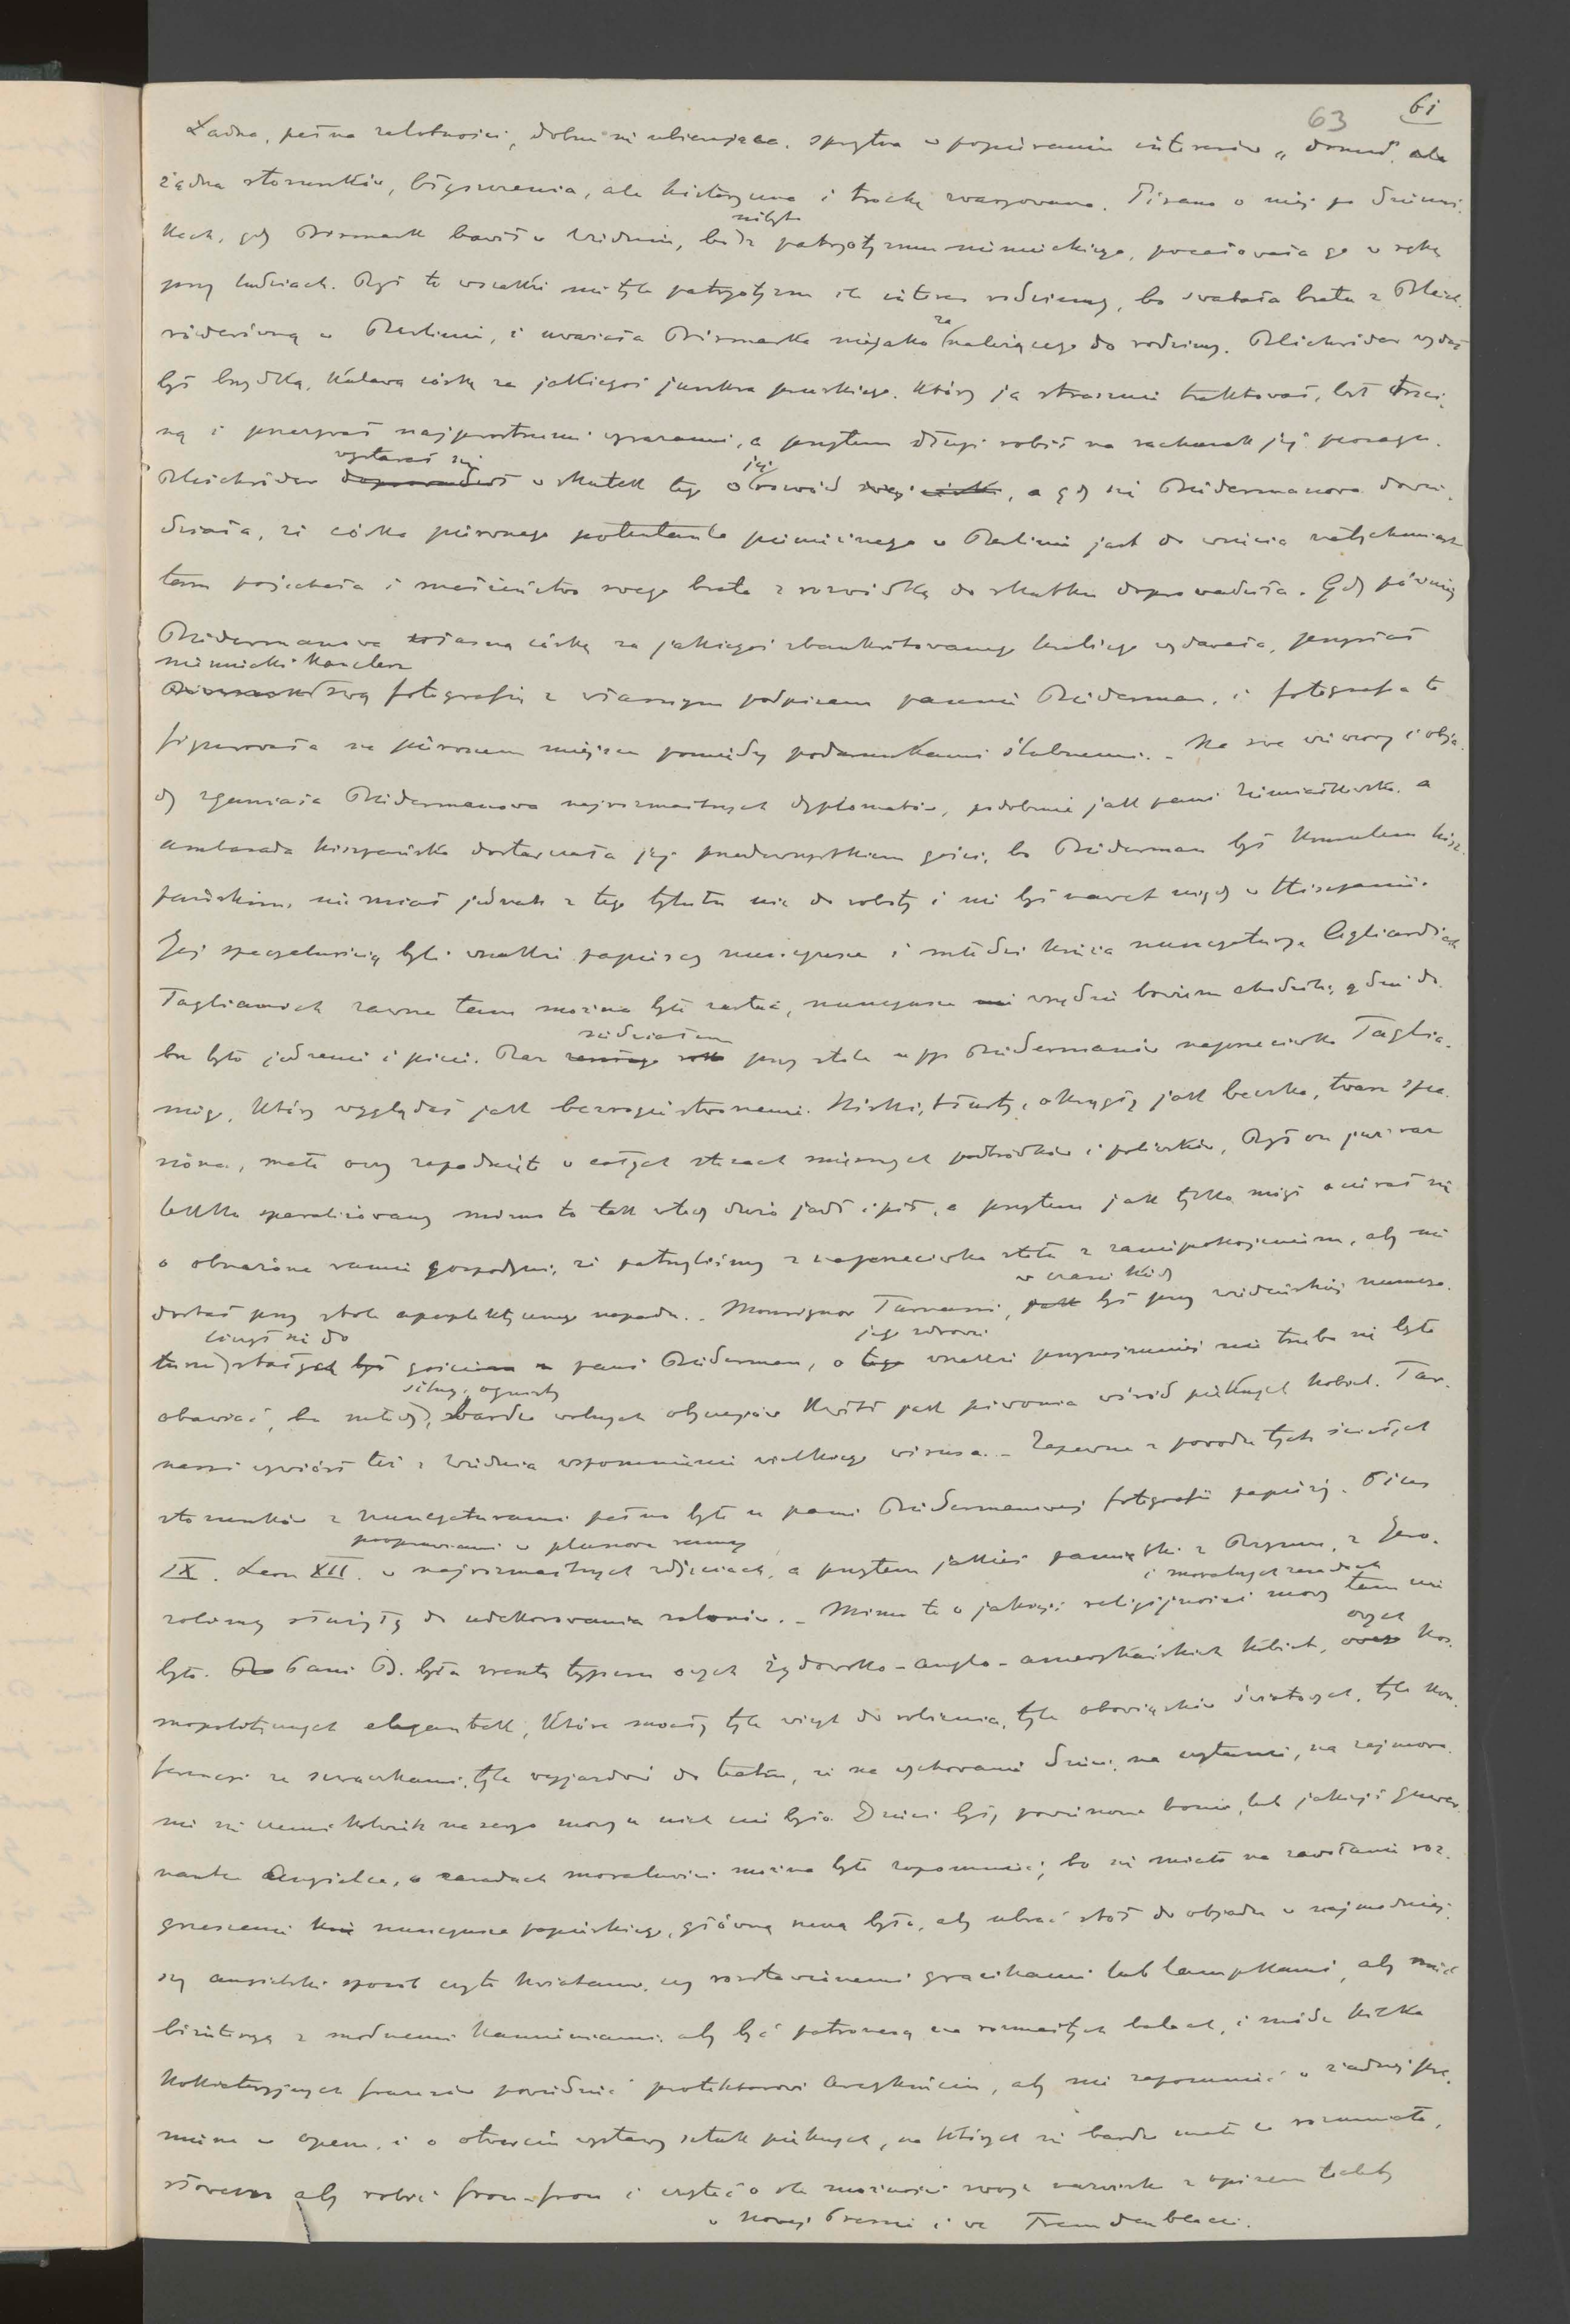 63 61
Ładna, pełna zalotności, dobrze się ubierająca, sprytna w popieraniu interesów „domu”, ale
żądna stosunków, błyszczenia, ale histeryczna i trochę zwaryowana. Pisano o niej po dzienni-
kach, gdy Bismark bawił w Wiedniu, bo niby z patryotyzmu niemieckiego, pocałowała go w rękę
przy ludziach. Był to wszakże nie tyle patryotyzm ile interes rodzinny, bo swatała brata z Bleich-
röderówną w Berlinie, i uważała Bismarka niejako za należącego do rodziny. Bleichröder wydał
był brzydką, kulawą córkę za jakiegoś junkra pruskiego, który ją strasznie traktował, bił trzci-
ną i przezywał najprostszemi wyrazami, a przytem długi robił na rachunek jej posagu.
Bleichröder wystarał się w skutek tego o jej rozwód, a gdy się Biedermanowa dowie-
działa, że córka pierwszego potentata pieniężnego w Berlinie jest do wzięcia natychmiast
tam pojechała i małżeństwo swego brata z rozwódką do skutku doprowadziła. Gdy później
Biedermanowa własną córkę za jakiegoś zbankrutowanego hrabiego wydawała, przysłał
niemiecki kanclerz
swą fotografię z własnym podpisem pannie Biederman, i fotografia ta
figurowała na pierwszem miejscu pomiędzy podarunkami ślubnemi. - Na swe wieczory i obja-
dy zgarniała Biedermanowa najrozmaitszych dyplomatów, podobnie jak pani Ziemiałkowska, a
ambasada hiszpańska dostarczała jej przedewszystkiem gości, bo Biederman był konsulem hisz-
pańskim, nie miał jednak z tego tytułu nic do roboty i nie był nawet nigdy w Hiszpanii.
Jej specyalnością byli wszakże papiescy nuncyusze i młodzi księża nuncyatury. Agliardich
Taglianich zawsze tam można było zastać, nuncyusze wszędzie bowiem chodzili, gdzie do-
bre było jedzenie i picie. Raz siedziałem przy stole u pp Biedermanów naprzeciwko Taglia-
niego, który wyglądał jak bezrogie stworzenie. Niski, tłusty, okrągły jak beczka, twarz
małe oczy zapadnięte w całych stosach mięsnych podbródków i policzków, Był on już raz
lekko sparaliżowany mimo to tak wtedy dużo jadł i pił, a przytem jak tylko mógł ocierał się
o obnażone ramię gospodyni, że patrzyliśmy z naprzeciwka stołu z zaniepokojeniem, aby nie
dostał przy stole apoplektycznego napadu. - Monsignor Tarnassi, w czasie kiedy był przy wiedeńskiej nuncya-
turze, liczył się do stałych gości pani Biederman, o jego zdrowie wszakże przynajmniej nie trzeba się było
obawiać, bo młody, silny, ognisty bardzo wolnych obyczajów kwitł jak piwonia wśród pięknych kobiet. Tar-
nassi wywiózł też z Wiednia wspomnienie wielkiego wisusa. - Zapewne z powodu tych ścisłych
stosunków z nuncyaturami pełno było u pani Biedermanowej fotografii papieży. Pius
IX. Leon XII. w najrozmaitszych zdjęciach, pooprawiani w pluszowe ramy, a przytem jakieś pamiątki z Rzymu, z Jero-
zolimy służyły do udekorowania salonów. - Mimo to o jakiejś religijności i moralnych zasadach mowy tam nie
było. Pani B. była zresztą typem owych żydowsko-anglo-amerykańskich kobiet, owych kos-
mopolitycznych elegantek, które miały tyle wizyt do robienia, tyle obowiązków światowych, tyle kon-
ferencyi ze szwaczkami, tyle wyjazdów do teatru, że na wychowanie dzieci, na czytanie, na zajmowa-
nie się czemikolwiek na seryo mowy u nich nie było. Dzieci były powierzone bonie, lub jakiejś guwer-
nantce Angielce, o zasadach moralności można było zapomnieć, bo się miało na zawołanie roz-
grzeszenie nuncyusza papieskiego, główną rzeczą było, aby ubrać stół do objadu w najmodniej-
szy angielski sposób czyto kwiatami, czy rozstawionemi gracikami lub lampkami, aby mieć
biżuteryą z modnemi kamieniami, aby być patronesą na rozmaitych balach, i módz kilka
kokieteryjnych frazesów powiedzieć protektorowi Arcyksięciu, aby nie zapomnieć o żadnej pre-
mierze w operze, i o otwarciu wystawy sztuk pięknych, na których się bardzo mało co rozumiało,
słowem aby robić frou-frou i czytać o ile możności swoje nazwisko z opisem toalety
w Nowej Pressie i we Fremdenblacie.